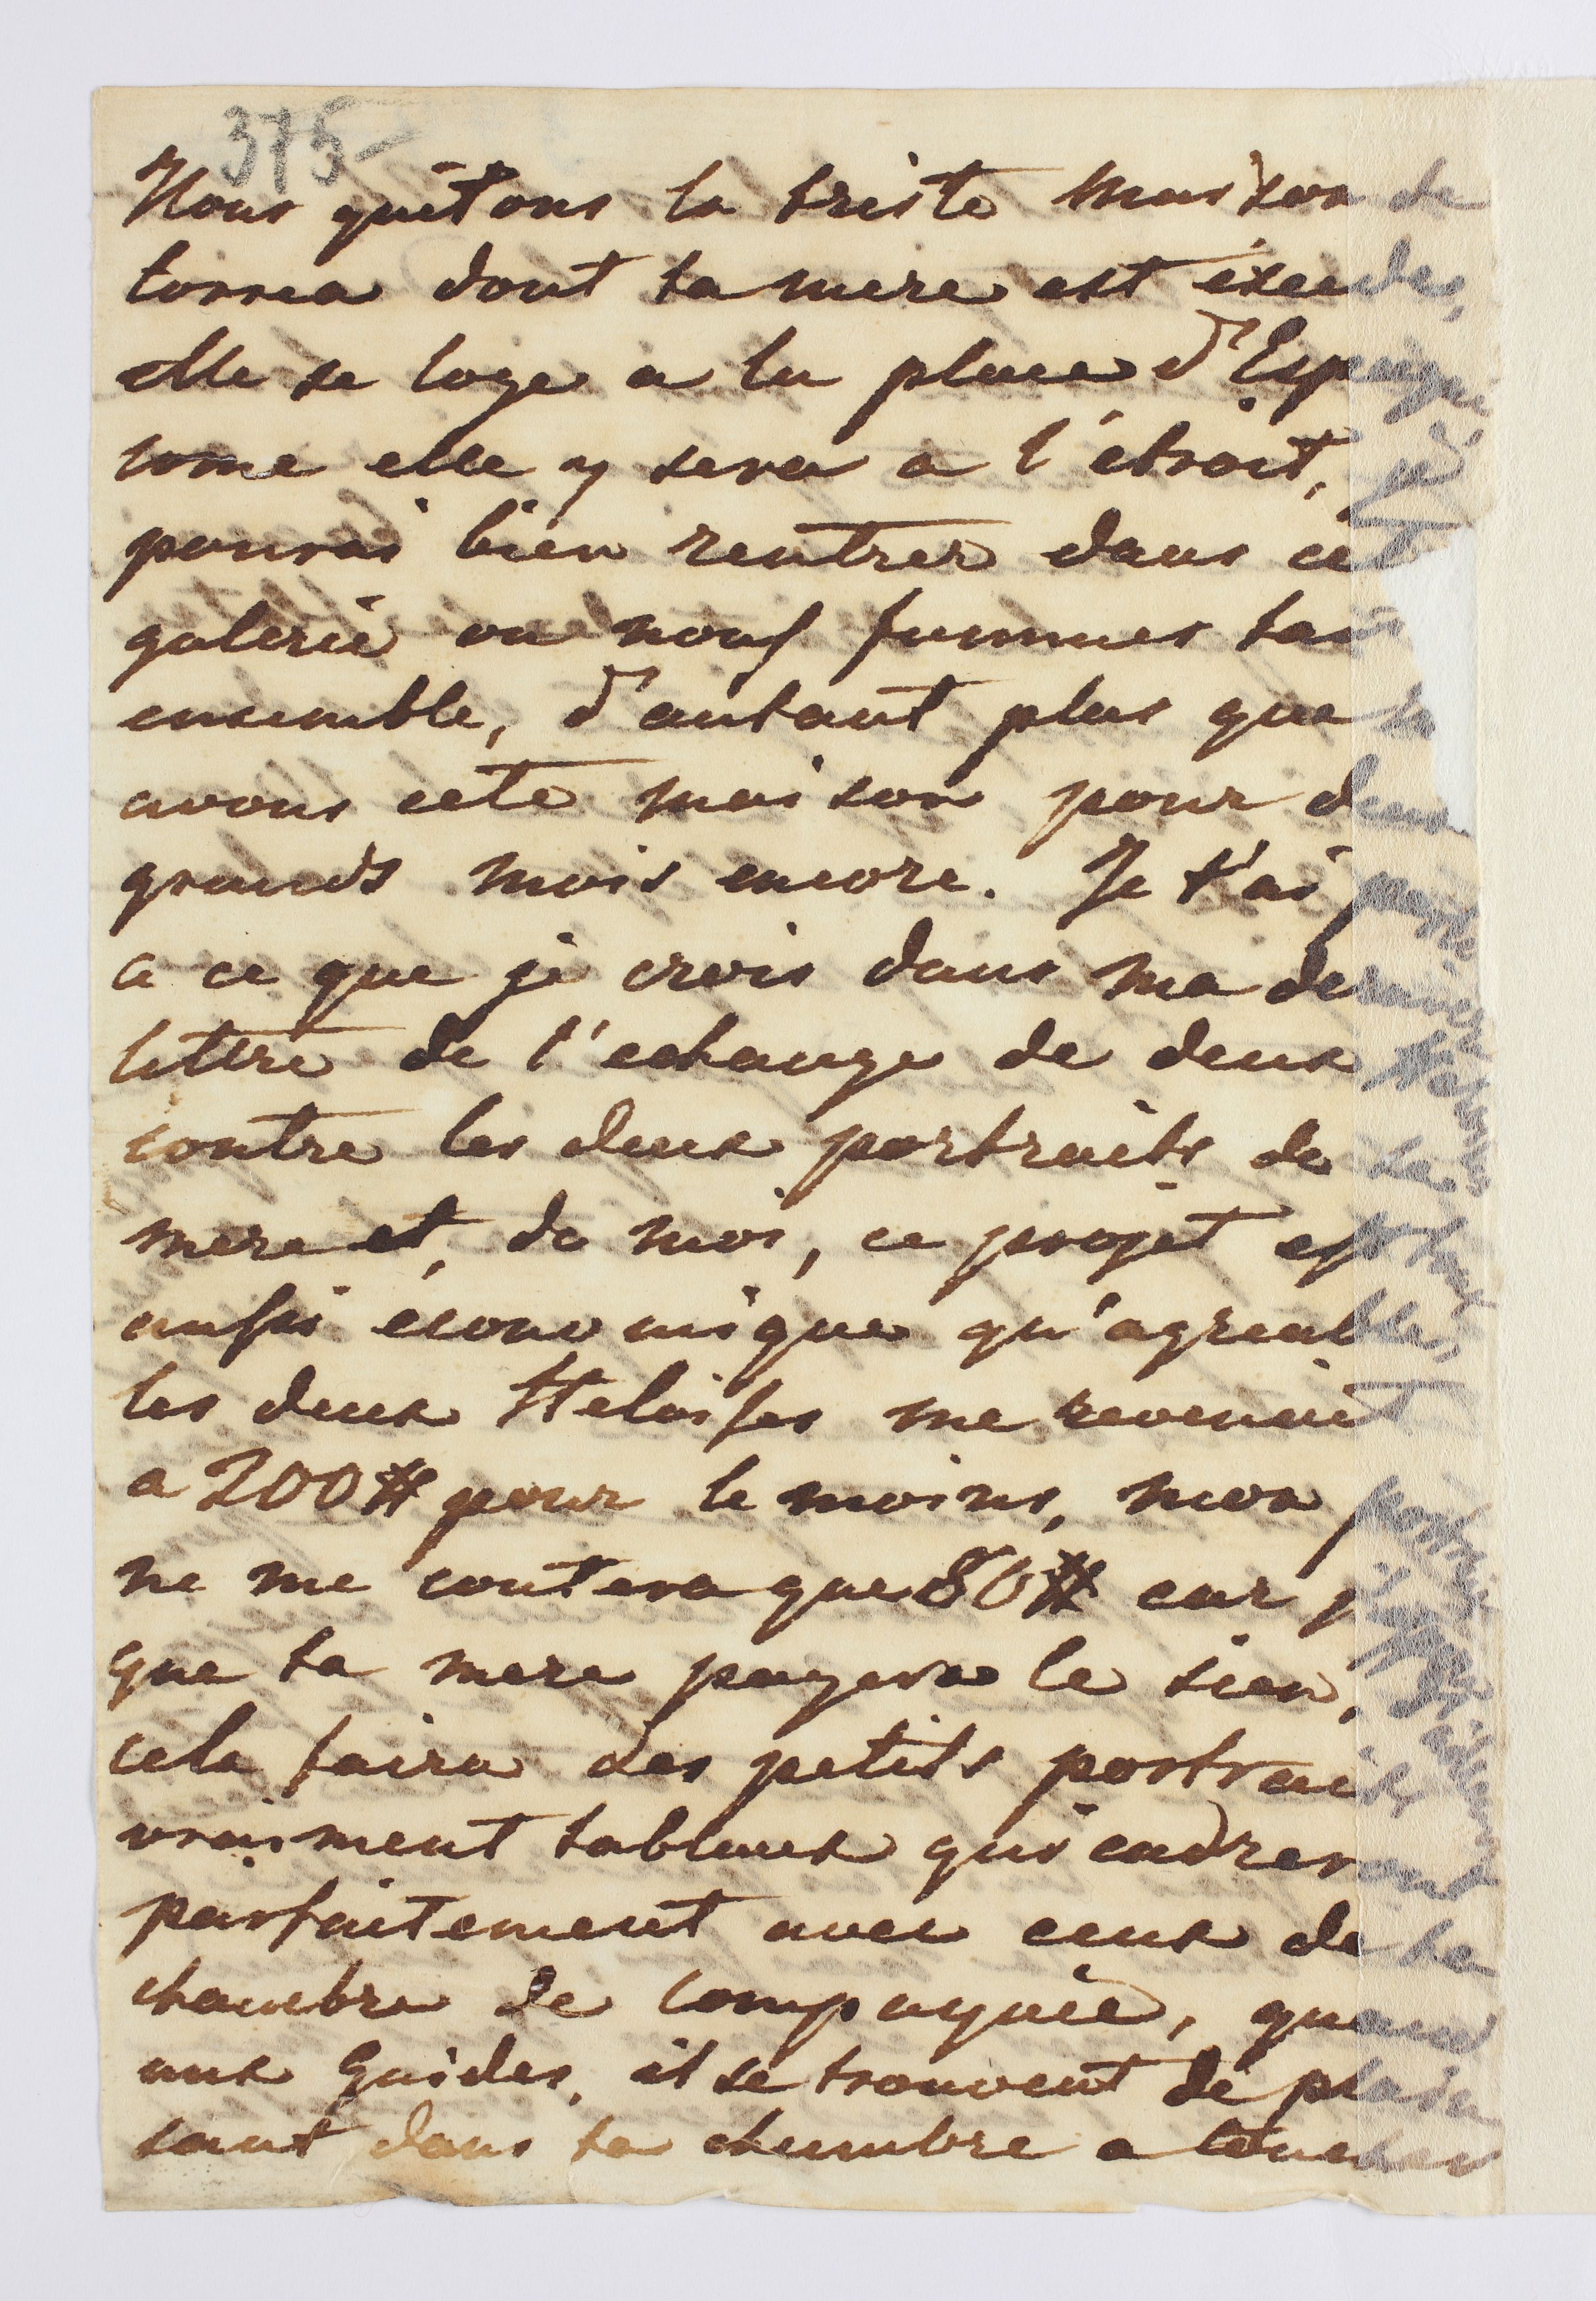 375
Nous quitons la triste maison de
torrea dont ta mere est éxcedée,
elle se loge a la place d'Espagne
come elle y sera a l'étroit, je
pourai bien rentrer dans cet
galerie ou nous fummes
ensemble, d'autant plus que
avons cete maison pour deux
grands mois encore. Je t'ai parlé
a ce que je crois dans ma dernier
lettre de l'echange de deux
contre les deux portraits de ta
mere et, de moi, ce projet est
aussi économique qu'agreable,
les deux Heloises me revenoit
a 200# pour le moins, mon portrait
ne me coutera que 80# car
que ta mere payera le sien,
cela faira des petits portraits
vraiment tableaux qui cadreront
parfaitement avec ceux de ta
chambre de compagnie, quand
aux Guides, il se trouvent dé plaisa
sant dans ta chambre a coucher